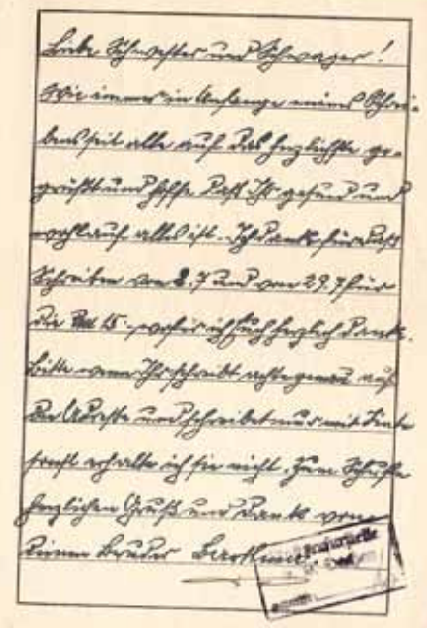 Liebe Schwester und Schwager!
Wie immer im Anfange meines Schrei-
bens seit alle auf das herzlichste ge-
grüßt und hoffe daß Ihr gesund und
wohlauf alles ist. Ich danke für
Schreiben vom 2.7 und vom 29.7 für
die RM 15.- wofür ich Euch herzlich danke.
Bitte wenn Ihr schreibt achte genau auf
die Adresse und schreibet nur mit Tinte
sonst erhalte ich sie nicht. Zum Schluße
herzlichen Gruß und Dank von
Deinem Bruder